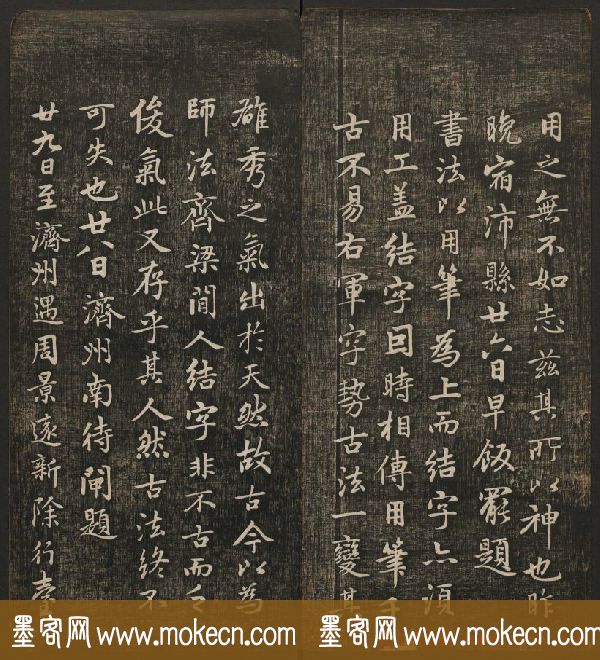 用之無不如志茲其所以神也昨
晚宿沛縣廿六日早飯罷題
書法以用筆為上而結字亦須
用工盖結字因時相傳用筆千
古不易右軍字勢古法一變其
雄秀之氣出於天然故古今以為
師法齊梁間人結字非不古而乏
俊氣此又存乎其人然古法終不
可失也廿八日濟州南待閘題
廿九日至濟州遇周景遠新除行臺
墨客网 www.mokecn.com 墨客网 www.mokecn.com